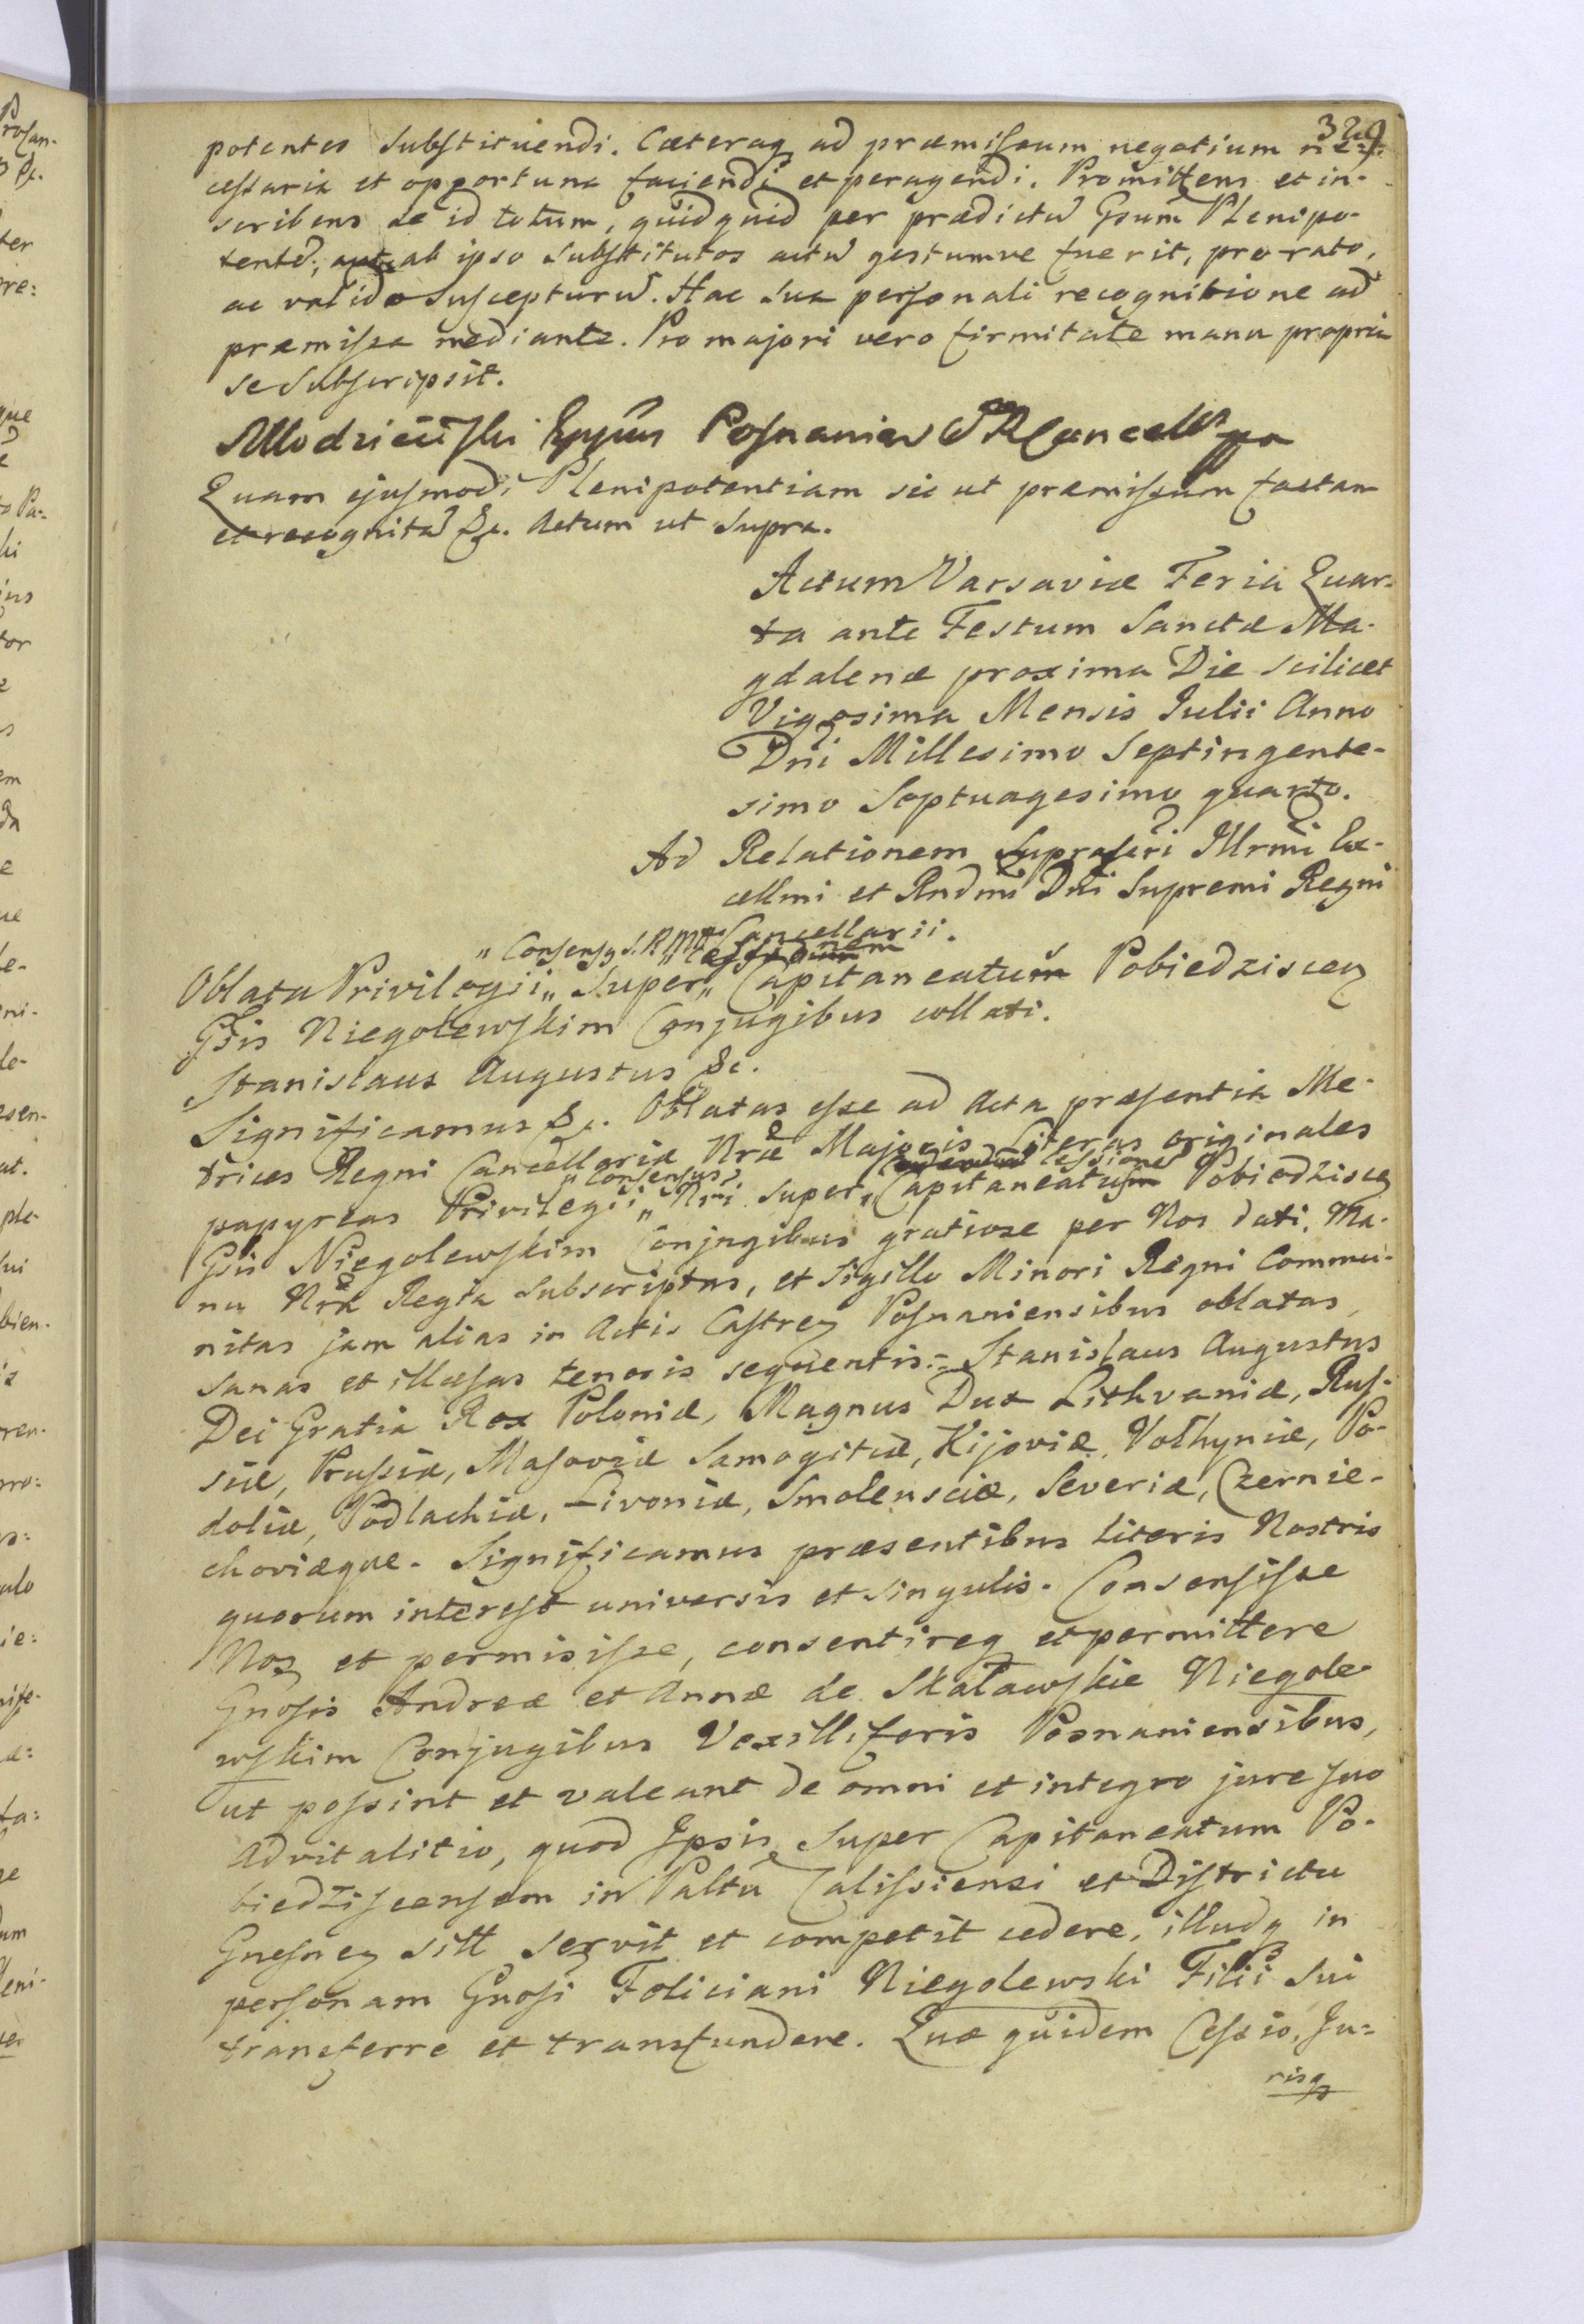 329
potentes substituendi. Cæteraq ad præmissum negotium ne-
cessaria et opportuna faciendi et peragendi. Promittens et in-
scribens se id totum, quidquid per prædictũ Gsum Plenipo-
tentẽ, aut ab ipso substitutos actũ gestumve fuerit, pro rato,
ac valido suscepturũ. Hac sua personali recognitione ad
præmissa mediante. Pro majori vero firmitate manu propria
se subscripsit.
Młodzieiiski Eppus Posnanien S R Cancell mpa
Quam ejusmodi Plenipotentiam sic ut præmissum factam
et recognitã &c. Actum ut supra.
Actum Varsaviæ Feria Quar-
ta ante Festum Sanctæ Ma-
gdalenæ proxima Die scilicet
Vigesima Mensis Julii Anno
Dni Millesimo Septingente-
simo Septuagesimo quarto.
Ad Relationem suprascri Illrmi Ex-
cellmi et Rndmi Dni Supremi Regni
Cancellarii.
" Consensq S. R. Mtis " cessionem
Oblata Privilegii " super " Capitaneatus Pobiedziscen
Gsis Niegolewskim Conjugibus collati.
Stanislaus Augustus &c.
Significamus &c. Oblatas esse ad Acta præsentia Me-
trices Regni Cancellariæ Nræ Majoris Literas originales
" Consensus cessionẽ
papyreas Privilegii " Nri super " Capitaneatus Pobiedziscen
Gsis Niegolewskim Conjugibus gratiose per Nos dati, Ma-
nu Nra Regia subscriptas, et sigillo Minori Regni Commu-
nitas jam alias in Actis Castren Posnaniensibus oblatas,
sanas et illæsas tenoris sequentis:- Stanislaus Augustus
Dei Gratia Rex Poloniæ, Magnus Dux Lithvaniæ, Rus-
siæ, Prussiæ, Masoviæ Samogitiæ, Kijoviæ, Volhyniæ, Po-
doliæ, Podlachiæ, Livoniæ, Smolensciæ, Severiæ, Czernie-
choviæque. Significamus præsentibus Literis Nostris
quorum interest universis et singulis. Consensisse
Nos et permisisse, consentireq et permittere
Gnosis Andreæ et Annæ de Skaławskie Niegole-
wskim Conjugibus Vexilliferis Posnaniensibus,
ut possint et valeant de omni et integro jure suo
Advitalitio, quod Ipsis super Capitaneatum Po-
biedziscensem in Paltu Calissiensi et Districtu
Gnesnen sitt servit et competit cedere, illudq in
personam Gnosi Feliciani Niegolewski Filii sui
transferre et transfundere. Quæ quidem Cessio, Ju-
risq